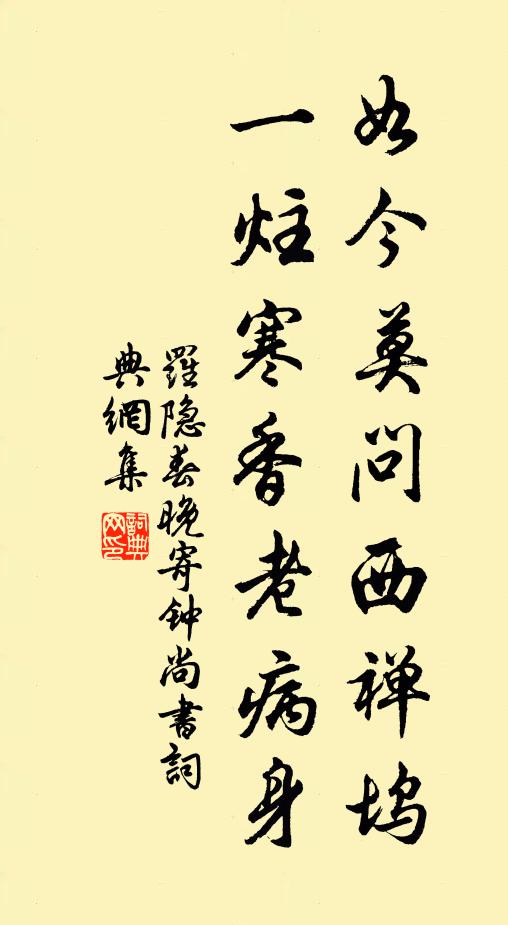 如今莫问西禅坞
一炷寒香老病身
羅隐春晚寄钟尚書詞
典網集
詞典
网印